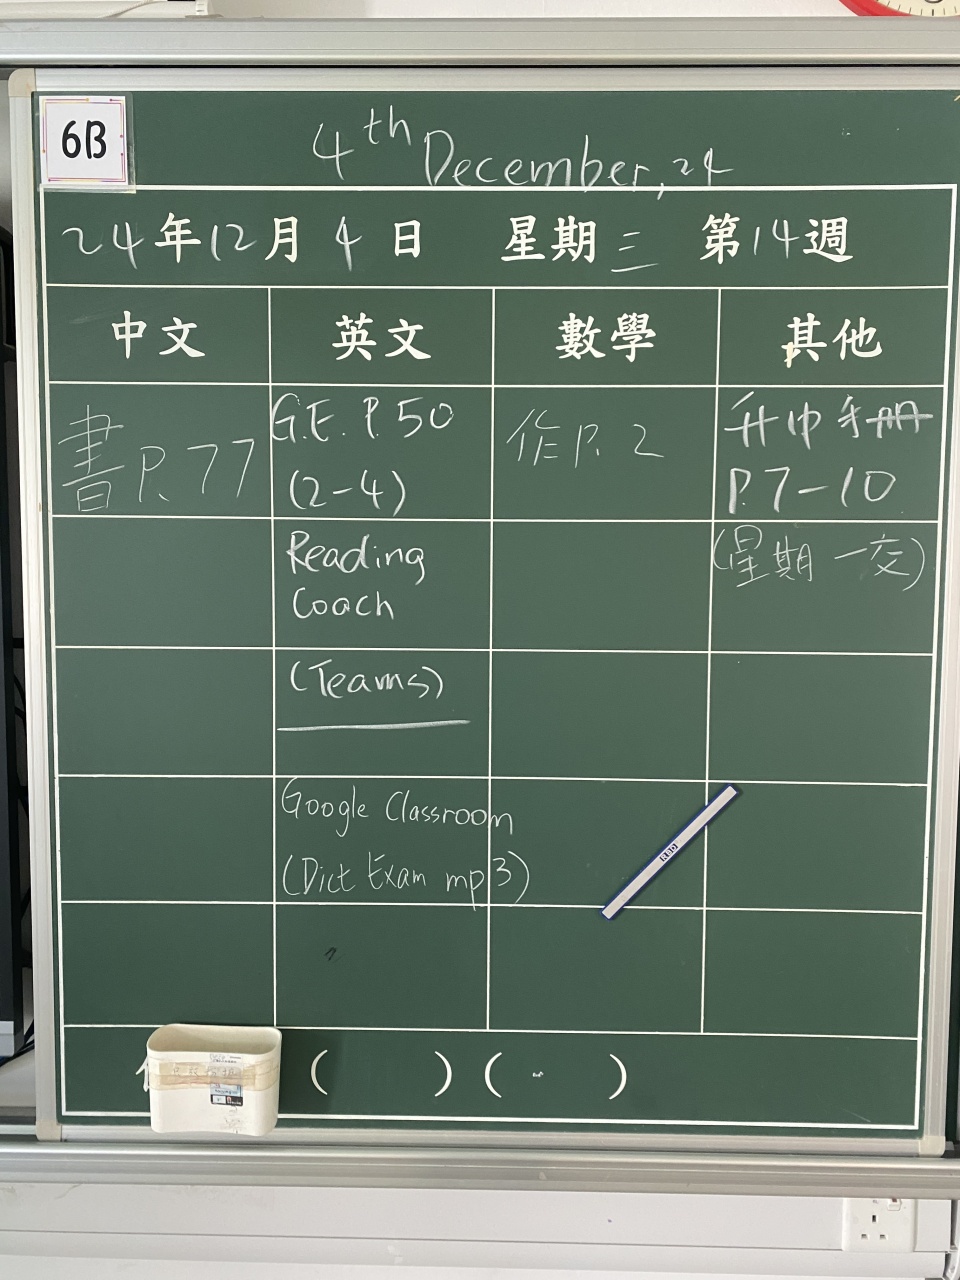 6B
4th December, 24
24年12月4日 星期三 第14週
中文 英文 數學 其他
書P.77
G.E. P.50
(2-4)
Reading
Coach
(Teams)
Google Classroom
(Dict Exam mp3)
作P.2
升中手冊
P.7-10
(星期一交)
( ) ( )